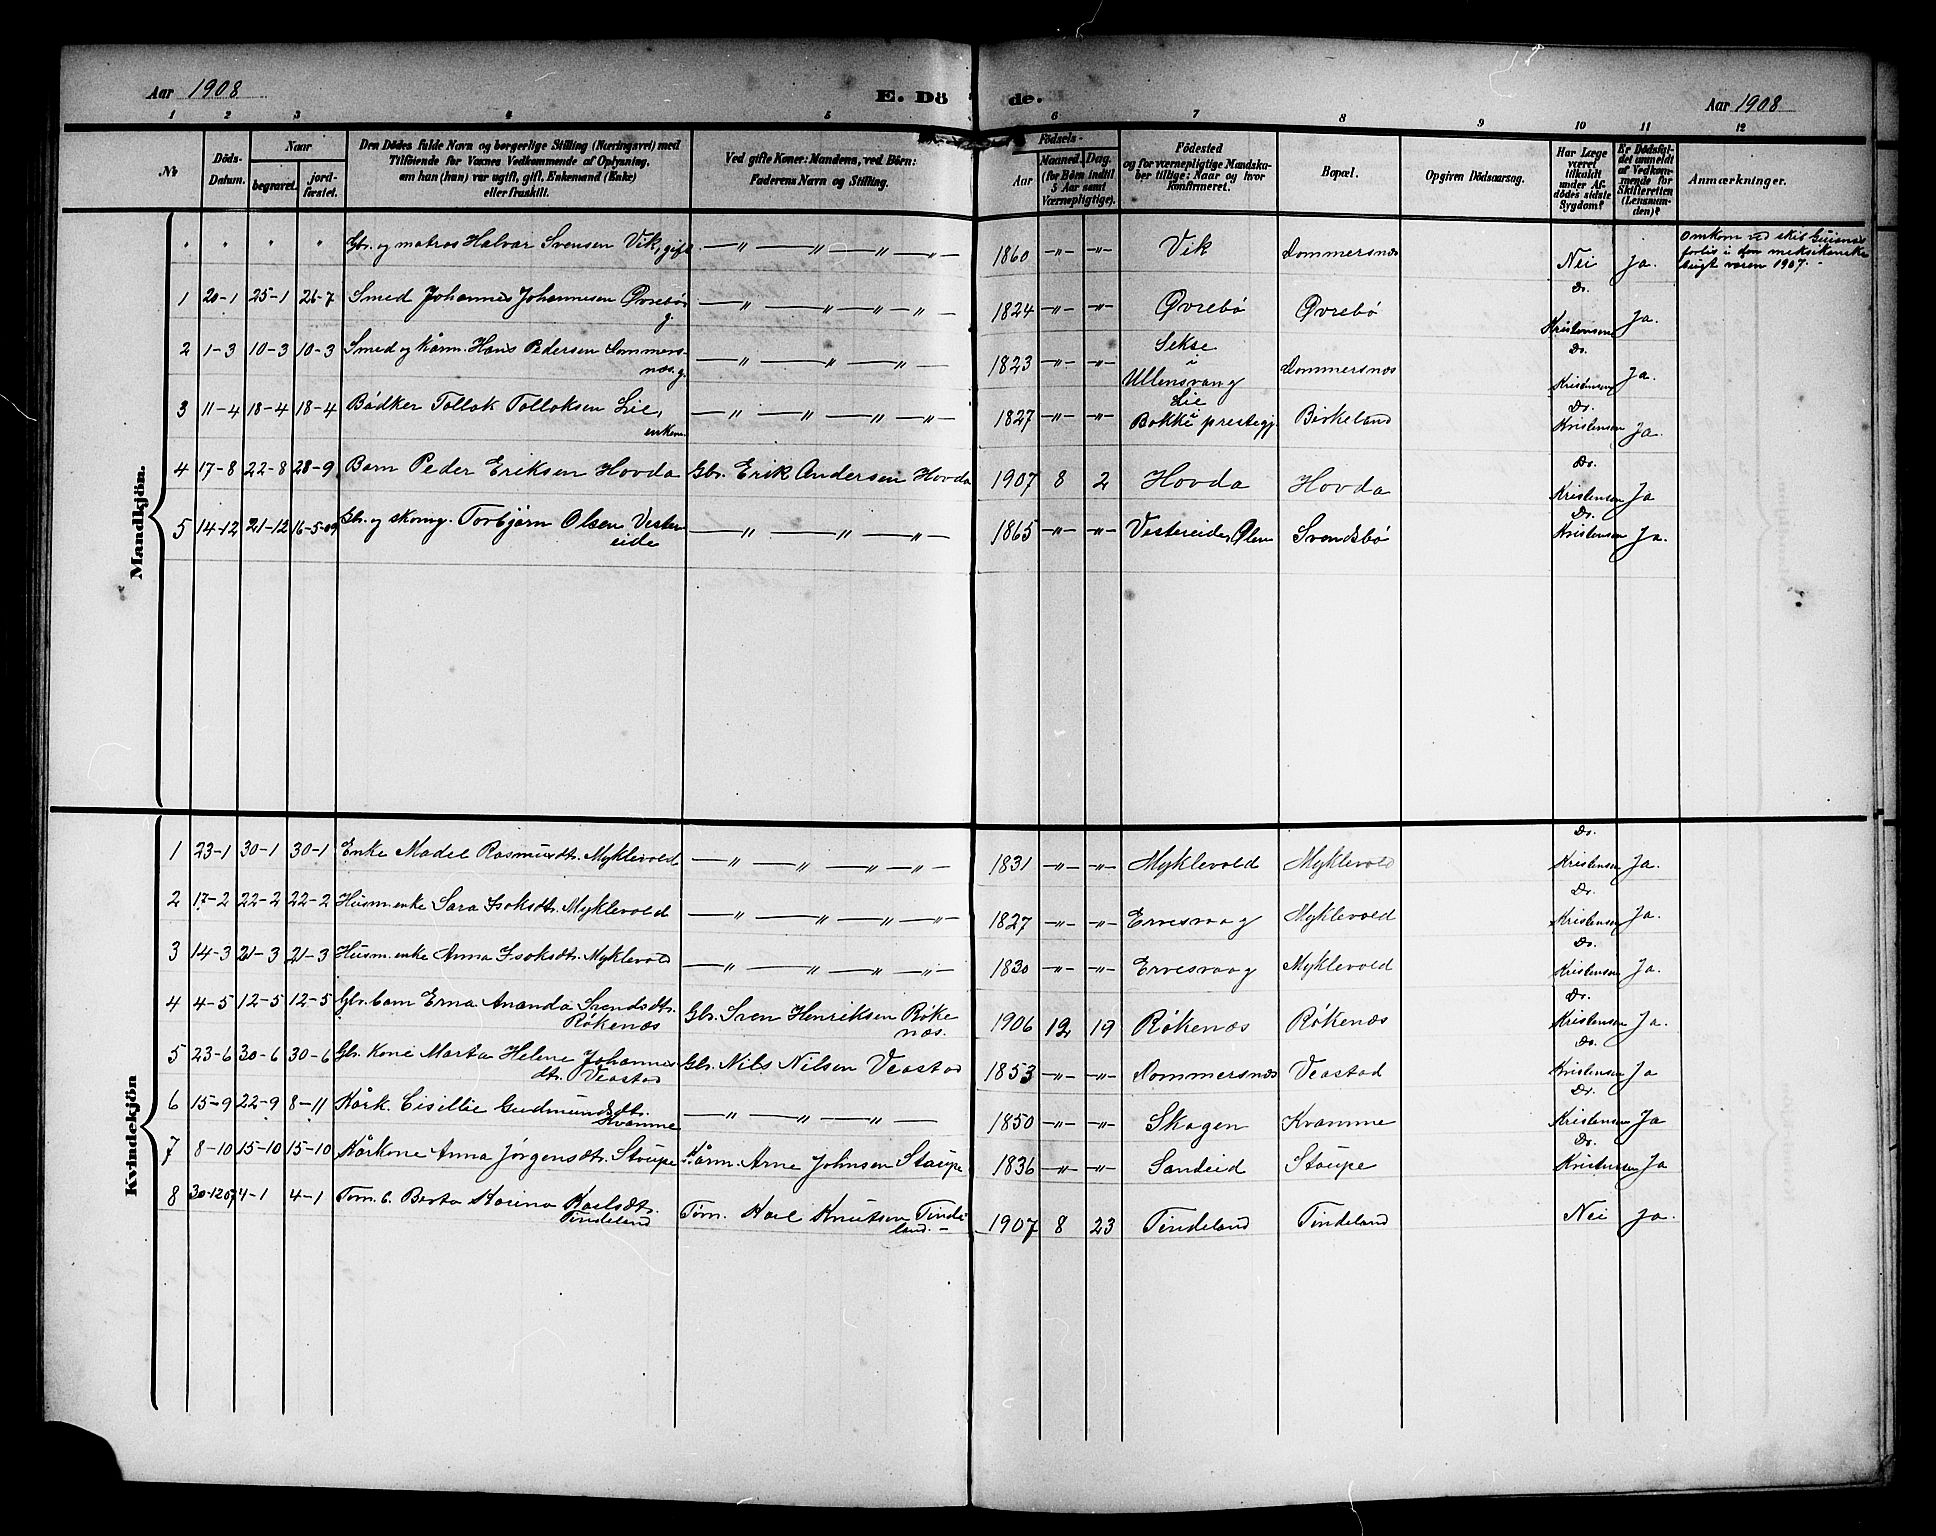 Aar 1908
E. Dö de.
Aar 1908
1 2 3 4 5 6 7 8 9 10 11 12
№
Döds-Datum.
Naar
begravet.
jord-fæstet.
Den Dödes fulde Navn og borgerlige Stilling (Næringsvei) med
Tilföiende for Voxnes Vedkommende af Oplysning,
om han (hun) var ugift, gift, Enkemand (Enke)
eller fraskilt.
Ved gifte Koner: Mandens, ved Börn:
Faderens Navn og Stilling.
Födsels-
Aar
Maaned. Dag.
(for Börn indtil
5 Aar samt
Værnepligtige).
Födested
og for værnepligtige Mandska-
ber tillige: Naar og hvor
konfirmeret.
Bopæl.
Opgiven Dödsaarsag.
Har Læge
været
tilkaldt
under Af-
dödes sidste
Sygdom?
Er Dödsfal-
det anmeldt
af Vedkom-
mende for
Skifteretten
(Lensman-
den)?
Anmærkninger.
Mandkjön.
" " " " Gbr. og matros Halvar Svensen Vik, gift —"— —"— —"— 1860 —"— —"— Vik Lommersnæs Nei Ja. Omkom ved skib
forlis i den meksikanske
bugt våren 1907.
1 20-1 25-1 26-7 Smed Johannes Johannesen Øvrebø g. —"— —"— —"— 1824 —"— —"— Øvrebø Øvrebø Dr. Kristensen Ja.
2 1-3 10-3 10-3 Smed og kårm. Hans Pedersen Lommers-
næs. g. —"— —"— —"— 1823 —"— —"— Sekse i Ullensvang Lommersnæs Dr. Kristensen Ja.
3 11-4 18-4 18-4 Bødker Tollak Tollaksen Lie, enkem. —"— —"— —"— 1827 —"— —"— Lie i Bakke prestegj. Birkeland Dr. Kristensen Ja.
4 17-8 22-8 28-9 Barn Peder Eriksen Hovda Gbr. Erik Andersen Hovda 1907 8 2 Hovda Hovda Dr. Kristensen Ja
5 14-12 21-12 16-5-09 Gbr. og skomg. Torbjørn Olsen Vester-
eide —"— —"— —"— 1865 —"— —"— Vestereide, Ølen Svendsbø Dr. Kristensen Ja.
Kvindekjön
1 23-1 30-1 30-1 Enke Madel Rasmusdtr. Myklevold —"— —"— —"— —"— 1831 —"— —"— Myklevold Myklevold Dr. Kristensen Ja.
2 17-2 22-2 22-2 Husm.enke Sara Isaksdtr. Myklevold —"— —"— —"— —"— 1827 —"— —"— Ervesvaag Myklevold Dr. Kristensen Ja.
3 14-3 21-3 21-3 Husm.enke Anna Isaksdtr. Myklevold —"— —"— —"— —"— 1830 —"— —"— Ervesvaag Myklevold Dr. Kristensen Ja.
4 4-5 12-5 12-5 Gbr.barn Erna Ananda Svendsdtr.
Røkenæs Gbr. Sven Henriksen Røke
næs. 1906 12 19 Røkenæs Røkenæs Dr. Kristensen Ja.
5 23-6 30-6 30-6 Gbr. Kone Marta Helene Johannes
dtr. Veastad Gbr. Nils Nilsen Veastad 1853 —"— —"— Lommersnæs Veastad Dr. Kristensen Ja
6 15-9 22-9 8-11 Kårk. Cisillie Gudmundsdtr.
Kvamme —"— —"— —"— 1850 —"— —"— Skagen Kvamme Dr. Kristensen Ja
7 8-10 15-10 15-10 Kårkone Anna Jørgensdtr. Staupe Kårm. Arne Johnsen Staupe 1836 —"— —"— Sandeid Staupe Dr. Kristensen Ja
8 30-12 07 4-1 4-1 Tøm. b. Berta Karina Karlsdtr.
Tindeland Tøm. Karl Knutsen Tinde
land. 1907 8 23 Tindeland Tindeland Nei Ja.